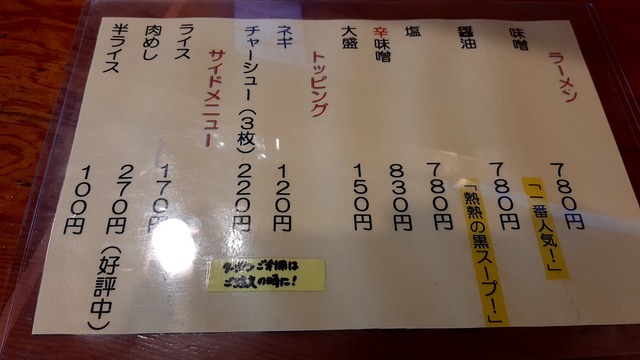 ラーメン
味噌 780円
「一番人気！」
醤油 780円
「熱熱の黒スープ！」
塩 780円
辛味噌 830円
大盛 150円
トッピング
ネギ 120円
チャーシュー（3枚） 220円
サイドメニュー
ライス 170円
肉めし 270円（好評中）
半ライス 100円
クーポンご利用は
ご注文の時に！